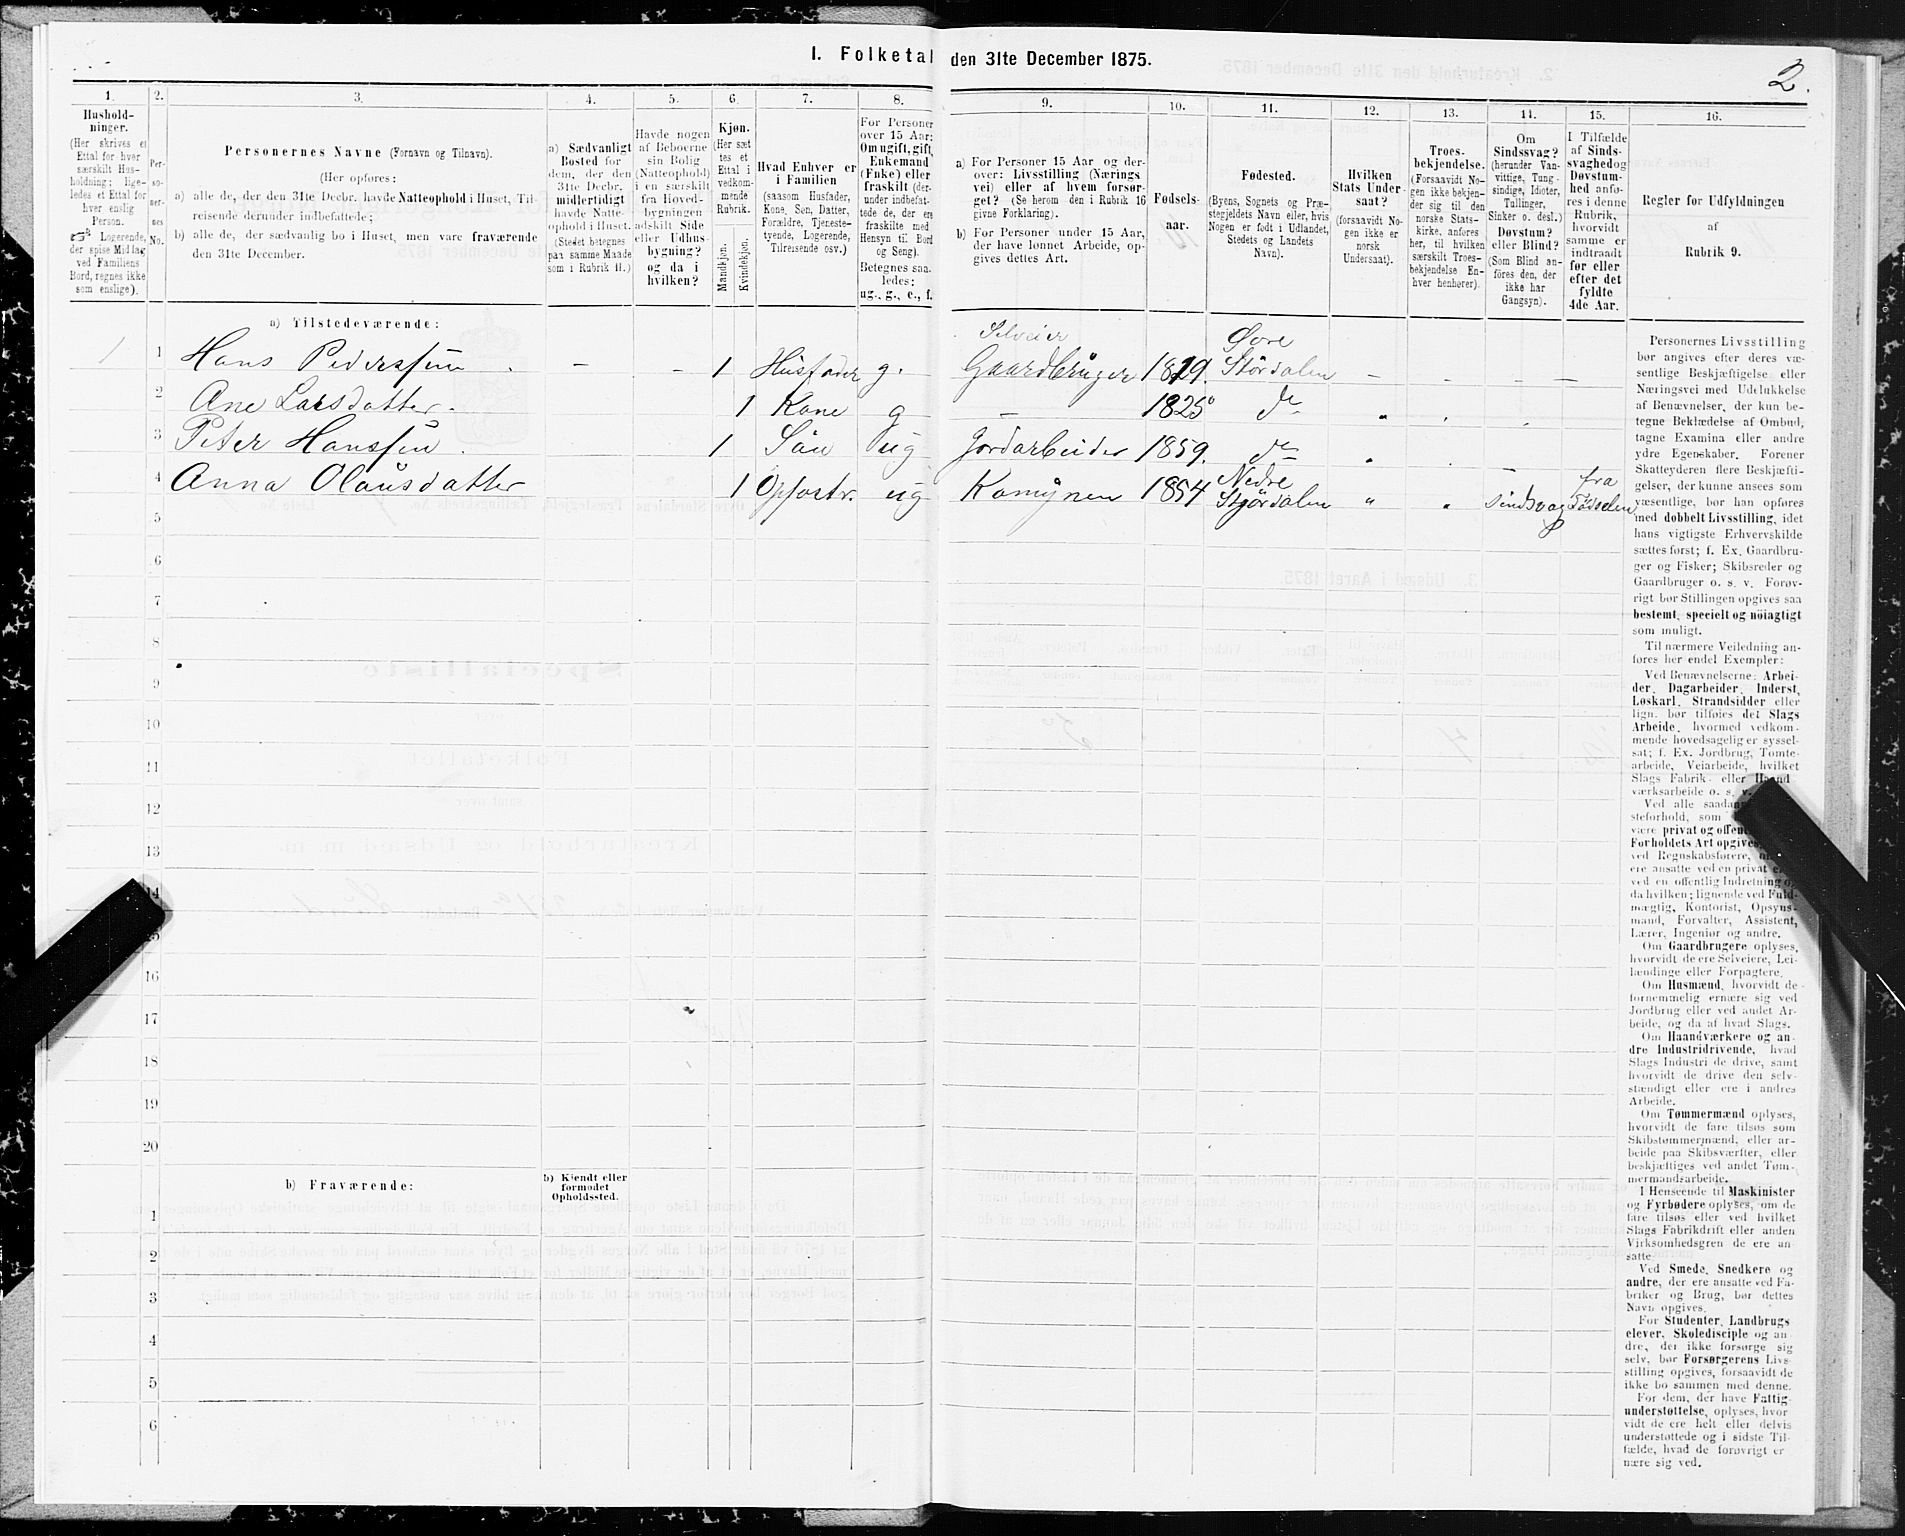 I. Folketal den 31te December 1875.
2.
1.
Hushold-
ninger.
(Her skrives et
Ettal for hver
særskilt Hus-
holdning; lige-
ledes et Ettal for
hver enslig
Person.
Logerende,
der spise Middag
ved Familiens
Bord, regnes ikke
som enslige).
2.
Per-
so-
ner-
nes
No.
3.
Personernes Navne (Fornavn og Tilnavn).
(Her opføres:
a) alle de, der den 31te Decbr. havde Natteophold i Huset, Til-
reisende derunder indbefattede;
b) alle de, der sædvanlig bo i Huset, men vare fraværende
den 31te December.
4.
a) Sædvanligt
Bosted for
dem, der den
31te Decbr.
midlertidigt
havde Natte-
ophold i Huset.
(Stedet betegnes
paa samme Maade
som i Rubrik 11.)
5.
Havde nogen
af Beboerne
sin Bolig
(Natteophold)
i en særskilt
fra Hoved-
bygningen
adskilt Side
eller Udhus-
bygning?
og da i
hvilken?
6.
Kjøn.
(Her sæt
tes et
Ettal i
vedkom-
mende
Rubrik.
Mandkjøn.
Kvindekjøn.
7.
Hvad Enhver er
i Familien
(saasom Husfader,
Kone, Søn, Datter,
Forældre, Tjeneste-
tyende, Logerende,
Tilreisende osv.)
8.
For Personer
over 15 Aar:
Om ugift, gift,
Enkemand
(Enke) eller
fraskilt (der-
under indbefat-
tede de, der ere
fraskilte med
Hensyn til Bord
og Seng).
Betegnes saa-
ledes:
ug., g., e., f.
9.
a) For Personer 15 Aar og der-
over: Livsstilling (Nærings
vei) eller af hvem forsør-
get? (Se herom den i Rubrik 16
givne Forklaring).
b) For Personer under 15 Aar,
der have lønnet Arbeide, op-
gives dettes Art.
10.
Fødsels-
aar.
11.
Fødested.
(Byens, Sognets og Præ-
stegjeldets Navn eller, hvis
Nogen er født i Udlandet,
Stedets og Landets
Navn).
12.
Hvilken
Stats Under-
saat?
(forsaavidt No-
gen ikke er
norsk
Undersaat).
13.
Troes-
bekjendelse.
(Forsaavidt No-
gen ikke bekjen-
der sig til den
norske Stats-
kirke, anføres
her, til hvilken
særskilt Troes-
bekjendelse En-
hver henhører).
14.
Om
Sindssvag?
(herunder Van-
vittige, Tung-
sindige, Idioter,
Tullinger,
Sinker o. desl.)
Døvstum?
eller Blind?
(Som Blind an-
føres den, der
ikke har
Gangsyn).
15.
I Tilfælde
af Sinds-
svaghed og
Døvstum-
hed anfø-
res i denne
Rubrik,
hvorvidt
samme er
indtraadt
før eller
efter det
fyldte
4de Aar.
16.
Regler for Udfyldningen
af
Rubrik 9.
a) Tilstedeværende:
Selveier Øvre
1 1 Hans Pederssen - - 1 Husfader g. Gaardbruger 1819. Størdalen - - - -
2 Ane Larsdatter. 1 Kone g - 1825 do " . .
3 Peter Hanssen 1 Søn ug Jordarbeider 1859. do
Nedre fra
4 Anna Olausdatter 1 Opfostr. ug 1854 Stjørdalen " " Sindsvag Fødselen
5
6
7
8
9
10
11
12
13
14
15
16
17
18
19
20
b) Fraværende:
b) Kjendt eller
formodet
Opholdssted.
1
2
3
4
5
6
Personernes Livsstilling
bør angives efter deres væ-
sentlige Beskjæftigelse eller
Næringsvei med Udelukkelse
af Benævnelser, der kun be-
tegne Beklædelse af Ombud,
tagne Examina eller andre
ydre Egenskaber. Forener
Skatteyderen flere Beskjæfti-
gelser, der kunne ansees som
væsentlige, bør han opføres
med dobbelt Livsstilling, idet
hans vigtigste Erhvervskilde
sættes først; f. Ex. Gaardbru-
ger og Fisker; Skibsreder og
Gaardbruger o. s. v. Forøv-
rigt bør Stillingen opgives saa
bestemt, specielt og nöiagtigt
som muligt.
Til nærmere Veiledning an-
føres her endel Exempler:
Ved Benævnelserne: Arbei-
der, Dagarbeider, Inderst,
Løskarl, Strandsidder eller
lign. bør tilføies det Slags
Arbeide, hvormed vedkom-
mende hovedsagelig er syssel-
sat; f. Ex. Jordbrug, Tomte-
arbeide, Veiarbeide, hvilket
Slags Fabrik- eller Haand-
værksarbeide o. s. v.
Ved alle saadanne
steforhold, som
være privat og offent
Forholdets Art opgives,
ved Regnskabsførere,
ere ansatte ved en privat
ved en offentlig Indretning og
da hvilken; lignende ved Fuld-
mægtig, Kontorist, Opsyns-
mand, Forvalter, Assistent,
Lærer, Ingeniør og andre.
Om Gaardbrugere oplyses,
hvorvidt de ere Selveiere, Lei-
lændinge eller Forpagtere.
Om Husmænd, hvorvidt de
fornemmelig ernære sig ved
Jordbrug eller ved andet Ar-
beide, og da af hvad Slags.
Om Haandværkere og an-
dre Industridrivende, hvad
Slags Industri de drive, samt
hvorvidt de drive den selv-
stændigt eller ere i andres
Arbeide.
Om Tømmermænd oplyses,
hvorvidt de fare tilsøs som
Skibstømmermænd, eller ar-
beide paa Skibsværfter, eller
beskjæftiges ved andet Tøm-
mermandsarbeide.
I Henseende til Maskinister
og Fyrbødere oplyses, om de
fare tilsøs eller ved hvilket
Slags Fabrikdrift eller anden
Virksomhedsgren de ere an-
satte.
Ved Smede, Snedkere og
andre, der ere ansatte ved Fa-
briker og Brug, bør dettes
Navn opgives.
For Studenter, Landbrugs-
elever, Skoledisciple og an-
dre, der ikke forsørge sig
selv, bør Forsørgerens Livs-
stilling opgives, forsaavidt de
ikke bo sammen med denne.
For dem, der have Fattig-
understøttelse, oplyses, hvor-
vidt de ere helt eller delvis
understøttede og i sidste Til-
fælde, hvad de forøvrigt er-
nære sig ved.